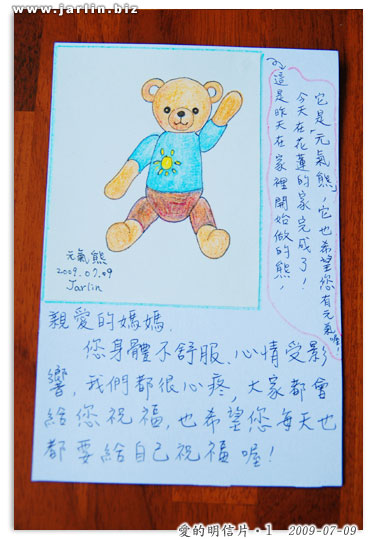 www.jarlin.biz
元氣熊
2009.07.09
Jarlin
這是昨天在家裡開始做的熊，
今天在花蓮的家完成了！
它是「元氣熊」，它也希望您有元氣喔！
親愛的媽媽，
您身體不舒服、心情受影
響，我們都很心疼，大家都會
給您祝福，也希望您每天也
都要給自己祝福喔！
愛的明信片·1 2009-07-09